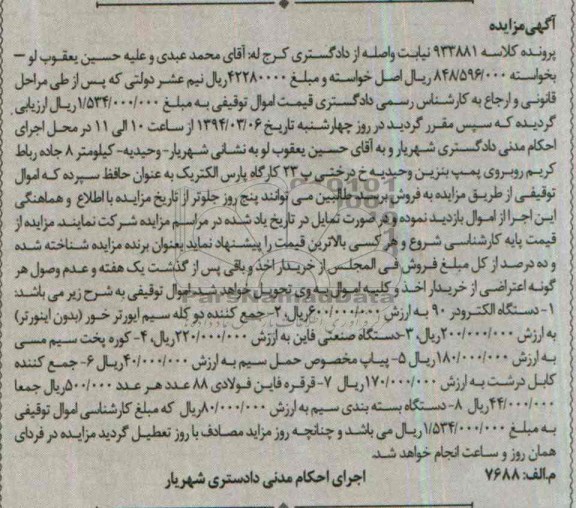 آگهی مزایده
پرونده کلاسه ۹۳۳۸۸۱ نیابت واصله از دادگستری کرج له: آقای محمد عبدی و علیه حسین یعقوب لو –
بخواسته ۸۴۸/۵۹۶/۰۰۰ ریال اصل خواسته و مبلغ ۴۲۲۸۰۰۰۰ریال نیم عشر دولتی که پس از طی مراحل
قانونی و ارجاع به کارشناس رسمی دادگستری قیمت اموال توقیفی به مبلغ ۱/۵۳۴/۰۰۰/۰۰۰ریال ارزیابی
گردیده که سپس مقرر گردید در روز چهارشنبه تاریخ ۱۳۹۴/۰۳/۰۶ از ساعت ۱۰ الی ۱۱ در محل اجرای
احکام مدنی دادگستری شهریار و به آقای حسین یعقوب لو به نشانی شهریار- وحیدیه- کیلومتر ۸ جاده رباط
کریم روبروی پمپ بنزین وحیدیه خ درختی پ ۲۳ کارگاه پارس الکتریک به عنوان حافظ سپرده که اموال
توقیفی از طریق مزایده به فروش برسد. طالبین می توانند پنج روز جلوتر از تاریخ مزایده با اطلاع و هماهنگی
این اجرا از اموال بازدید نموده و در صورت تمایل در تاریخ یاد شده در مراسم مزایده شرکت نمایند مزایده از
قیمت پایه کارشناسی شروع و هر کسی بالاترین قیمت را پیشنهاد نماید بعنوان برنده مزایده شناخته شده
و ده درصد از کل مبلغ فروش فی المجلس از خریدار اخذ و باقی پس از گذشت یک هفته و عدم وصول هر
گونه اعتراضی از خریدار اخذ و کلیه اموال به وی تحویل خواهد شد. اموال توقیفی به شرح زیر می باشد:
۱- دستگاه الکترودر ۹۰ به ارزش ۶۰۰/۰۰۰/۰۰۰ریال، ۲- جمع کننده دو کله سیم اپورتر خور (بدون اینورتر)
به ارزش ۲۰۰/۰۰۰/۰۰۰ریال، ۳-دستگاه صنعتی فاین به ارزش ۲۲۰/۰۰۰/۰۰۰ریال، ۴- کوره پخت سیم مسی
به ارزش ۱۸۰/۰۰۰/۰۰۰ریال ۵- پیاپ مخصوص حمل سیم به ارزش ۴۰/۰۰۰/۰۰۰ریال ۶- جمع کننده
کابل درشت به ارزش ۱۷۰/۰۰۰/۰۰۰ریال ۷- قرقره فاین فولادی ۸۸ عدد هر عدد ۵۰۰/۰۰۰ریال جمعا
۴۴/۰۰۰/۰۰۰ریال ۸- دستگاه بسته بندی سیم به ارزش ۸۰/۰۰۰/۰۰۰ریال که مبلغ کارشناسی اموال توقیفی
به مبلغ ۱/۵۳۴/۰۰۰/۰۰۰ریال می باشد و چنانچه روز مزاید مصادف با روز تعطیل گردید مزایده در فردای
همان روز و ساعت انجام خواهد شد.
م.الف: ۷۶۸۸ اجرای احکام مدنی دادستری شهریار